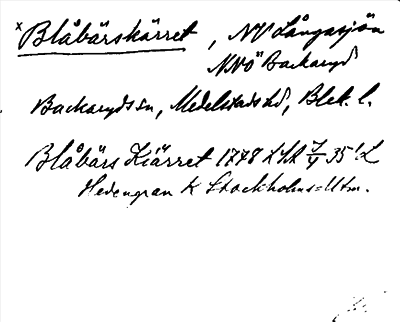 x Blåbärskärret, NV Långasjön
NNÖ Backaryd
Backaryds sn, Medelstads hd, Blek. l.
Blåbärs Kiärret 1778 35
Hedengran K Stockholms = Utm.